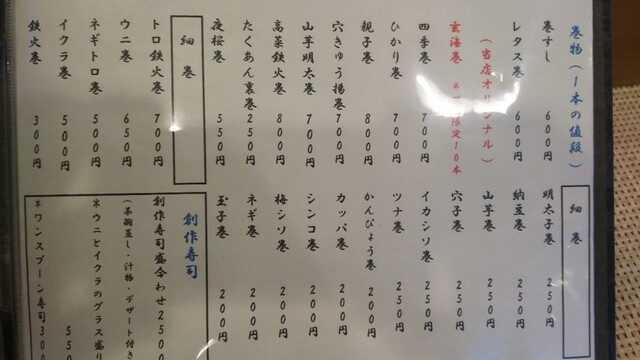 巻物（1本の値段）
巻すし 600円
レタス巻 600円
（当店オリジナル）
玄海巻 限定10本
四季巻 700円
ひかり巻 700円
親子巻 800円
穴きゅう揚巻 700円
山芋明太巻 700円
高菜鉄火巻 800円
たくあん裏巻 250円
夜桜巻 550円
細巻
トロ鉄火巻 700円
ウニ巻 650円
ネギトロ巻 500円
イクラ巻 500円
鉄火巻 300円
細巻
明太子巻 250円
納豆巻 250円
山芋巻 250円
穴子巻 250円
イカシソ巻 250円
ツナ巻 250円
かんぴょう巻 200円
カッパ巻 200円
シンコ巻 200円
梅シソ巻 200円
ネギ巻 200円
玉子巻 200円
創作寿司
創作寿司盛合わせ 2500
（茶碗蒸し・汁物・デザート付き
*ウニとイクラのグラス盛り
550
*ワンスプーン寿司 300